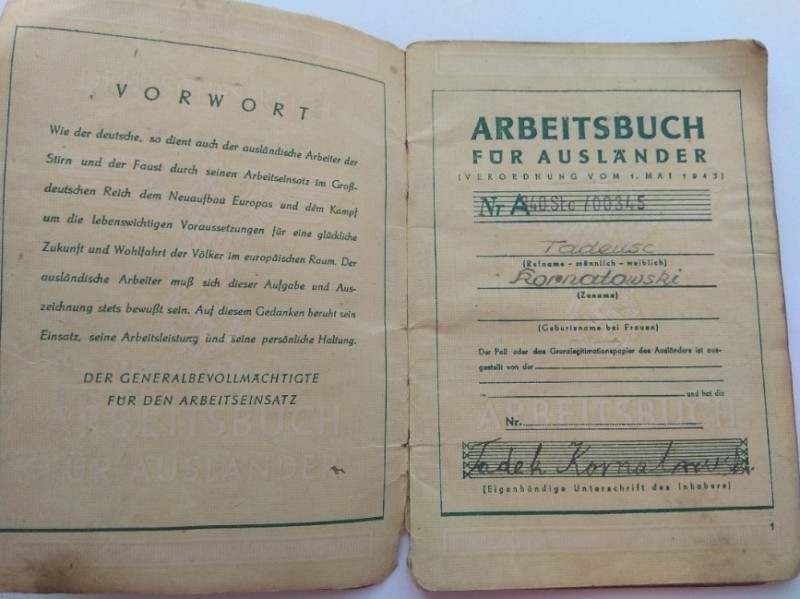 VORWORT
Wie der deutsche, so dient auch der ausländische Arbeiter der
Stirn und der Faust durch seinen Arbeitseinsatz im Groß-
deutschen Reich dem Neuaufbau Europas und dem Kampf
um die lebenswichtigen Voraussetzungen für eine glückliche
Zukunft und Wohlfahrt der Völker im europäischen Raum. Der
ausländische Arbeiter muß sich dieser Aufgabe und Aus-
zeichnung stets bewußt sein. Auf diesem Gedanken beruht sein
Einsatz, seine Arbeitsleistung und seine persönliche Haltung.
DER GENERALBEVOLLMÄCHTIGTE
FÜR DEN ARBEITSEINSATZ
ARBEITSBUCH
FÜR AUSLÄNDER
ARBEITSBUCH
FÜR AUSLÄNDER
(VERORDNUNG VOM 1. MAI 1943)
Nr A 340.Sto /00345
Tadeusc
(Rufname – männlich – weiblich)
Kornatowski
(Zuname)
(Geburtsname bei Frauen)
Der Paß oder das Grenzlegitimationspapier des Ausländers ist aus-
gestellt von der
und hat die
ARBEITSBUCH
Nr.
Tadek Kornatowski
(Eigenhändige Unterschrift des Inhabers)
1